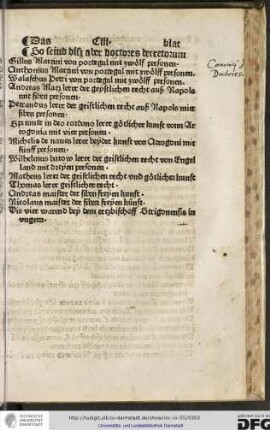 Das CIII. blat
So seind diß aber doctores decretorum
Gilles Martini von portegul mit zwölf personen.
Anthonius Martini von portegul mit zwölff personen.
Walaschus Petri von portegul mit zwölf personen.
Andreas lerer der geystlichen recht auß Napols
mit siben personen.
Petrandus lerer der geistlichen recht auß Napols mit
siben personen.
de lerer götlicher kunst vonn Ar
rogonia mit vier personen
Michelis de naues lerer beyder kunst von Arrogoni mit
fünff personen
Wilhelmus lerer der geistlichen recht von Engel
land mit dreyen personen.
Matheus lerer der geistlichen recht vnd götlicher kunst
Thomas lerer geistlicher recht.
Andreas maister der siben freyen kunst.
Nicolaus maister der siben freyen künst.
Die vier warend bey dem ertzbischoff Strigonensis in
vngern.
Doctores.
http://tudigit.ulb.tu-darmstadt.de/show/inc-iv-55/0363
Universitäts- und Landesbibliothek Darmstadt
TECHNISCHE
UNIVERSITÄT
DARMSTADT
DFG